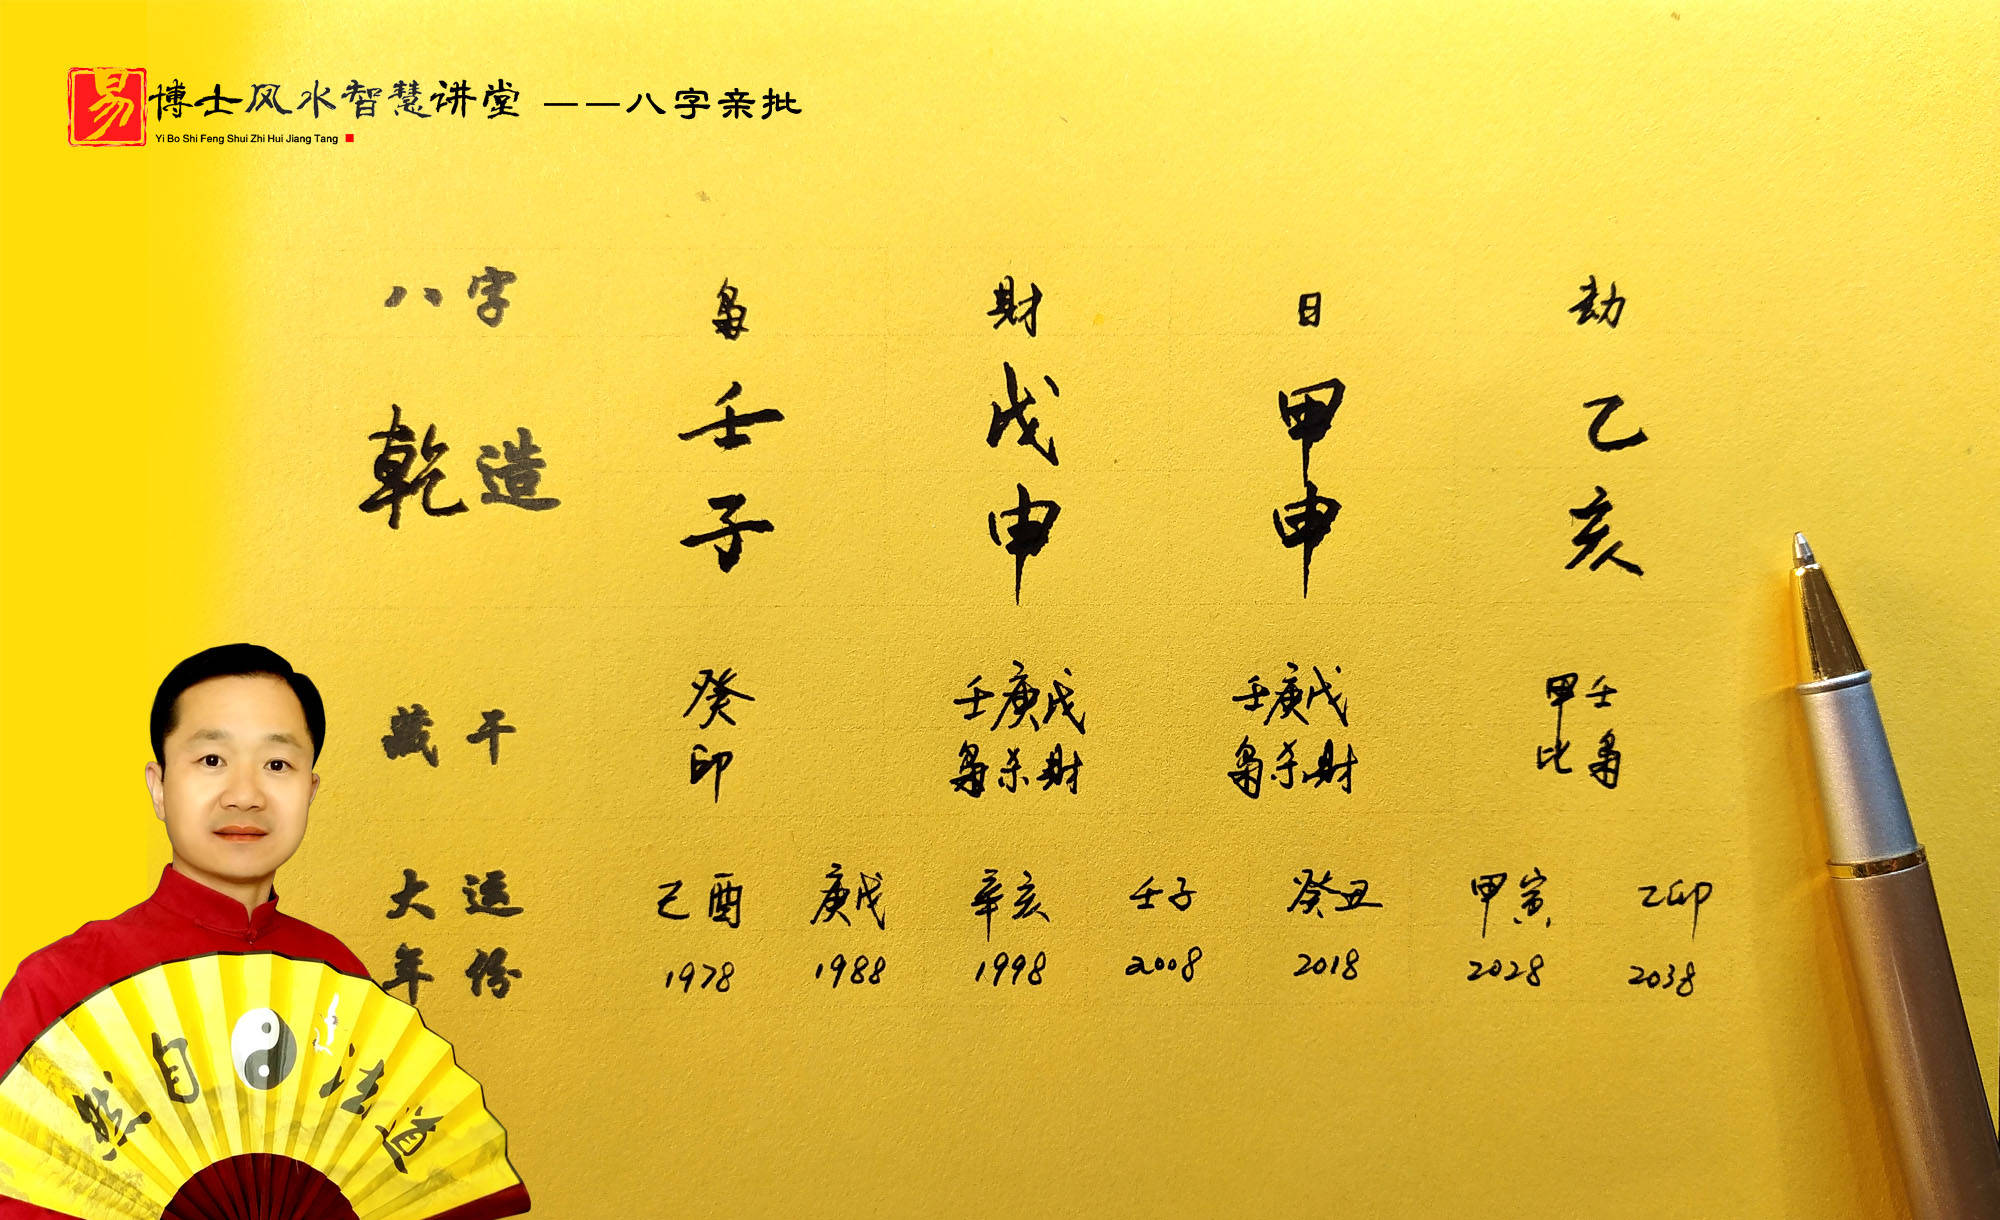 易博士风水智慧讲堂 ——八字亲批
Yi Bo Shi Feng Shui Zhi Hui Jiang Tang
八字 枭 財 日 劫
乾造 壬 戊 甲 乙
子 申 申 亥
藏干 癸 壬庚戊 壬庚戊 甲壬
印 枭杀財 枭杀財 比枭
大运 己酉 庚戌 辛亥 壬子 癸丑 甲寅 乙卯
年份 1978 1988 1998 2008 2018 2028 2038
道法自然